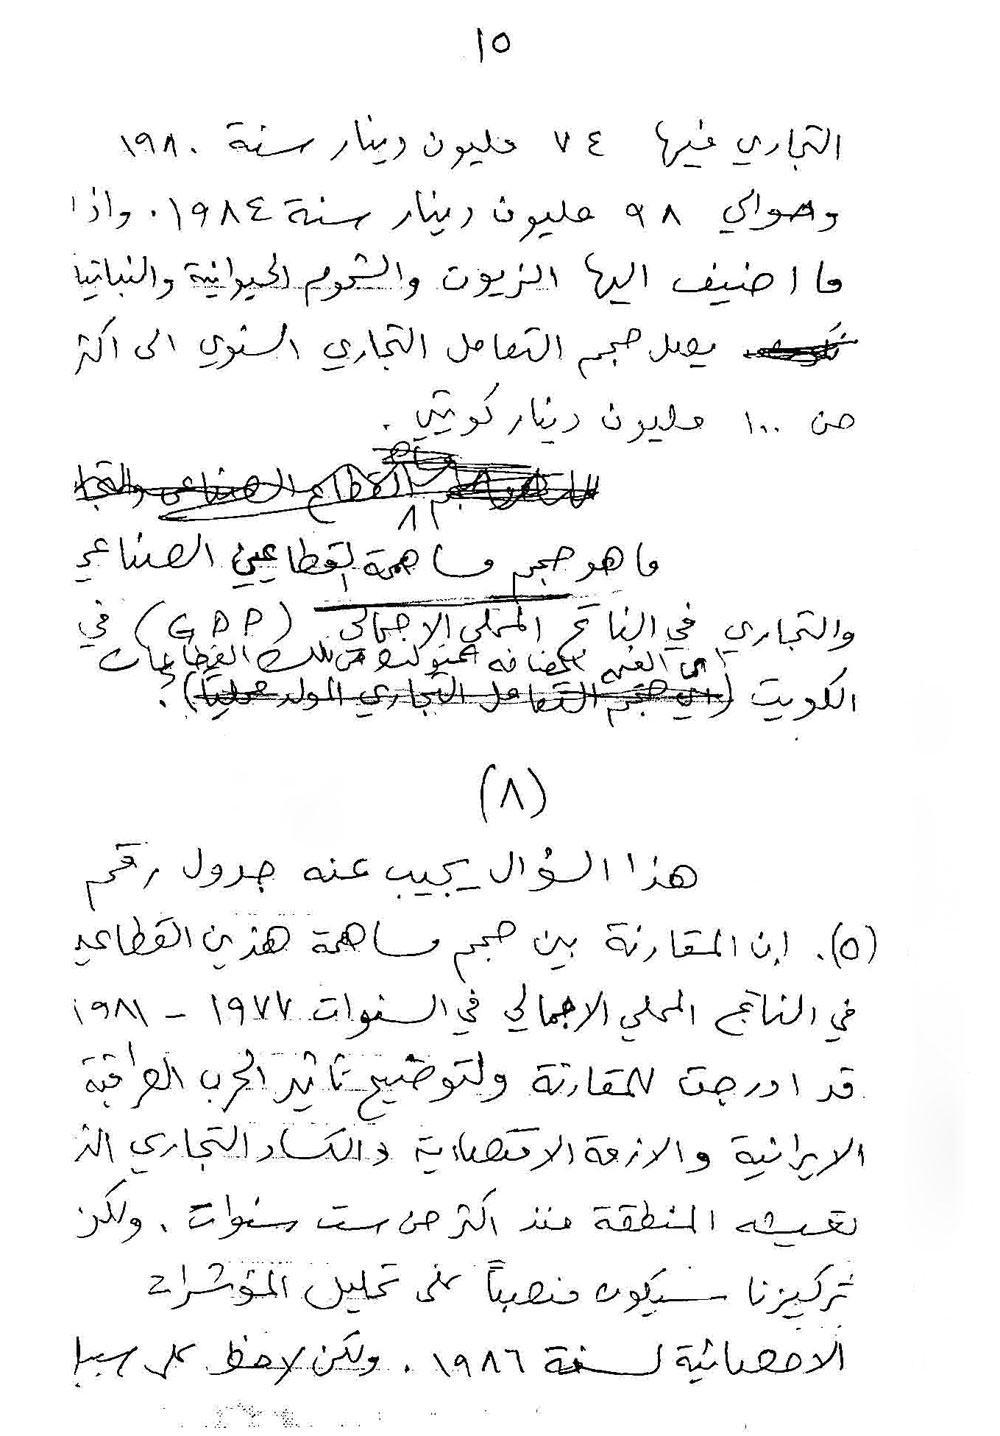 ١٥
التجاري فيها ٧٤ مليون دينار سنة ١٩٨٠
وحوالي ٩٨ مليون دينار سنة ١٩٨٤. واذا
ما اضيف اليها الزيوت والشحوم الحيوانية والنباتيا
يصل حجم التعامل التجاري السنوي الى اكثر
من ١٠٠ مليون دينار كويتي.
القطاع الصناعي والتجا
٨١
ما هو حجم مساهمة القطاعين الصناعي
والتجاري في الناتج المحلي الاجمالي (GDP) في
اي القيمة المضافة من تلك القطاعات
الكويت (اي حجم التعامل التجاري المولد محلياً)؟
(٨)
هذا السؤال يجيب عنه جدول رقم
(٥). إن المقارنة بين حجم مساهمة هذين القطاعيـ
في الناتج المحلي الاجمالي في السنوات ١٩٧٧ - ١٩٨١
قد ادرجت للمقارنة ولتوضيح تاثير الحرب العراقية
الايرانية والازمة الاقتصادية والكساد التجاري الذ
تعيشه المنطقة منذ اكثر من ست سنوات. ولكن
تركيزنا سيكون منصباً على تحليل المؤشرات
الاحصائية لسنة ١٩٨٦. ولكن لاحظ على سبيل